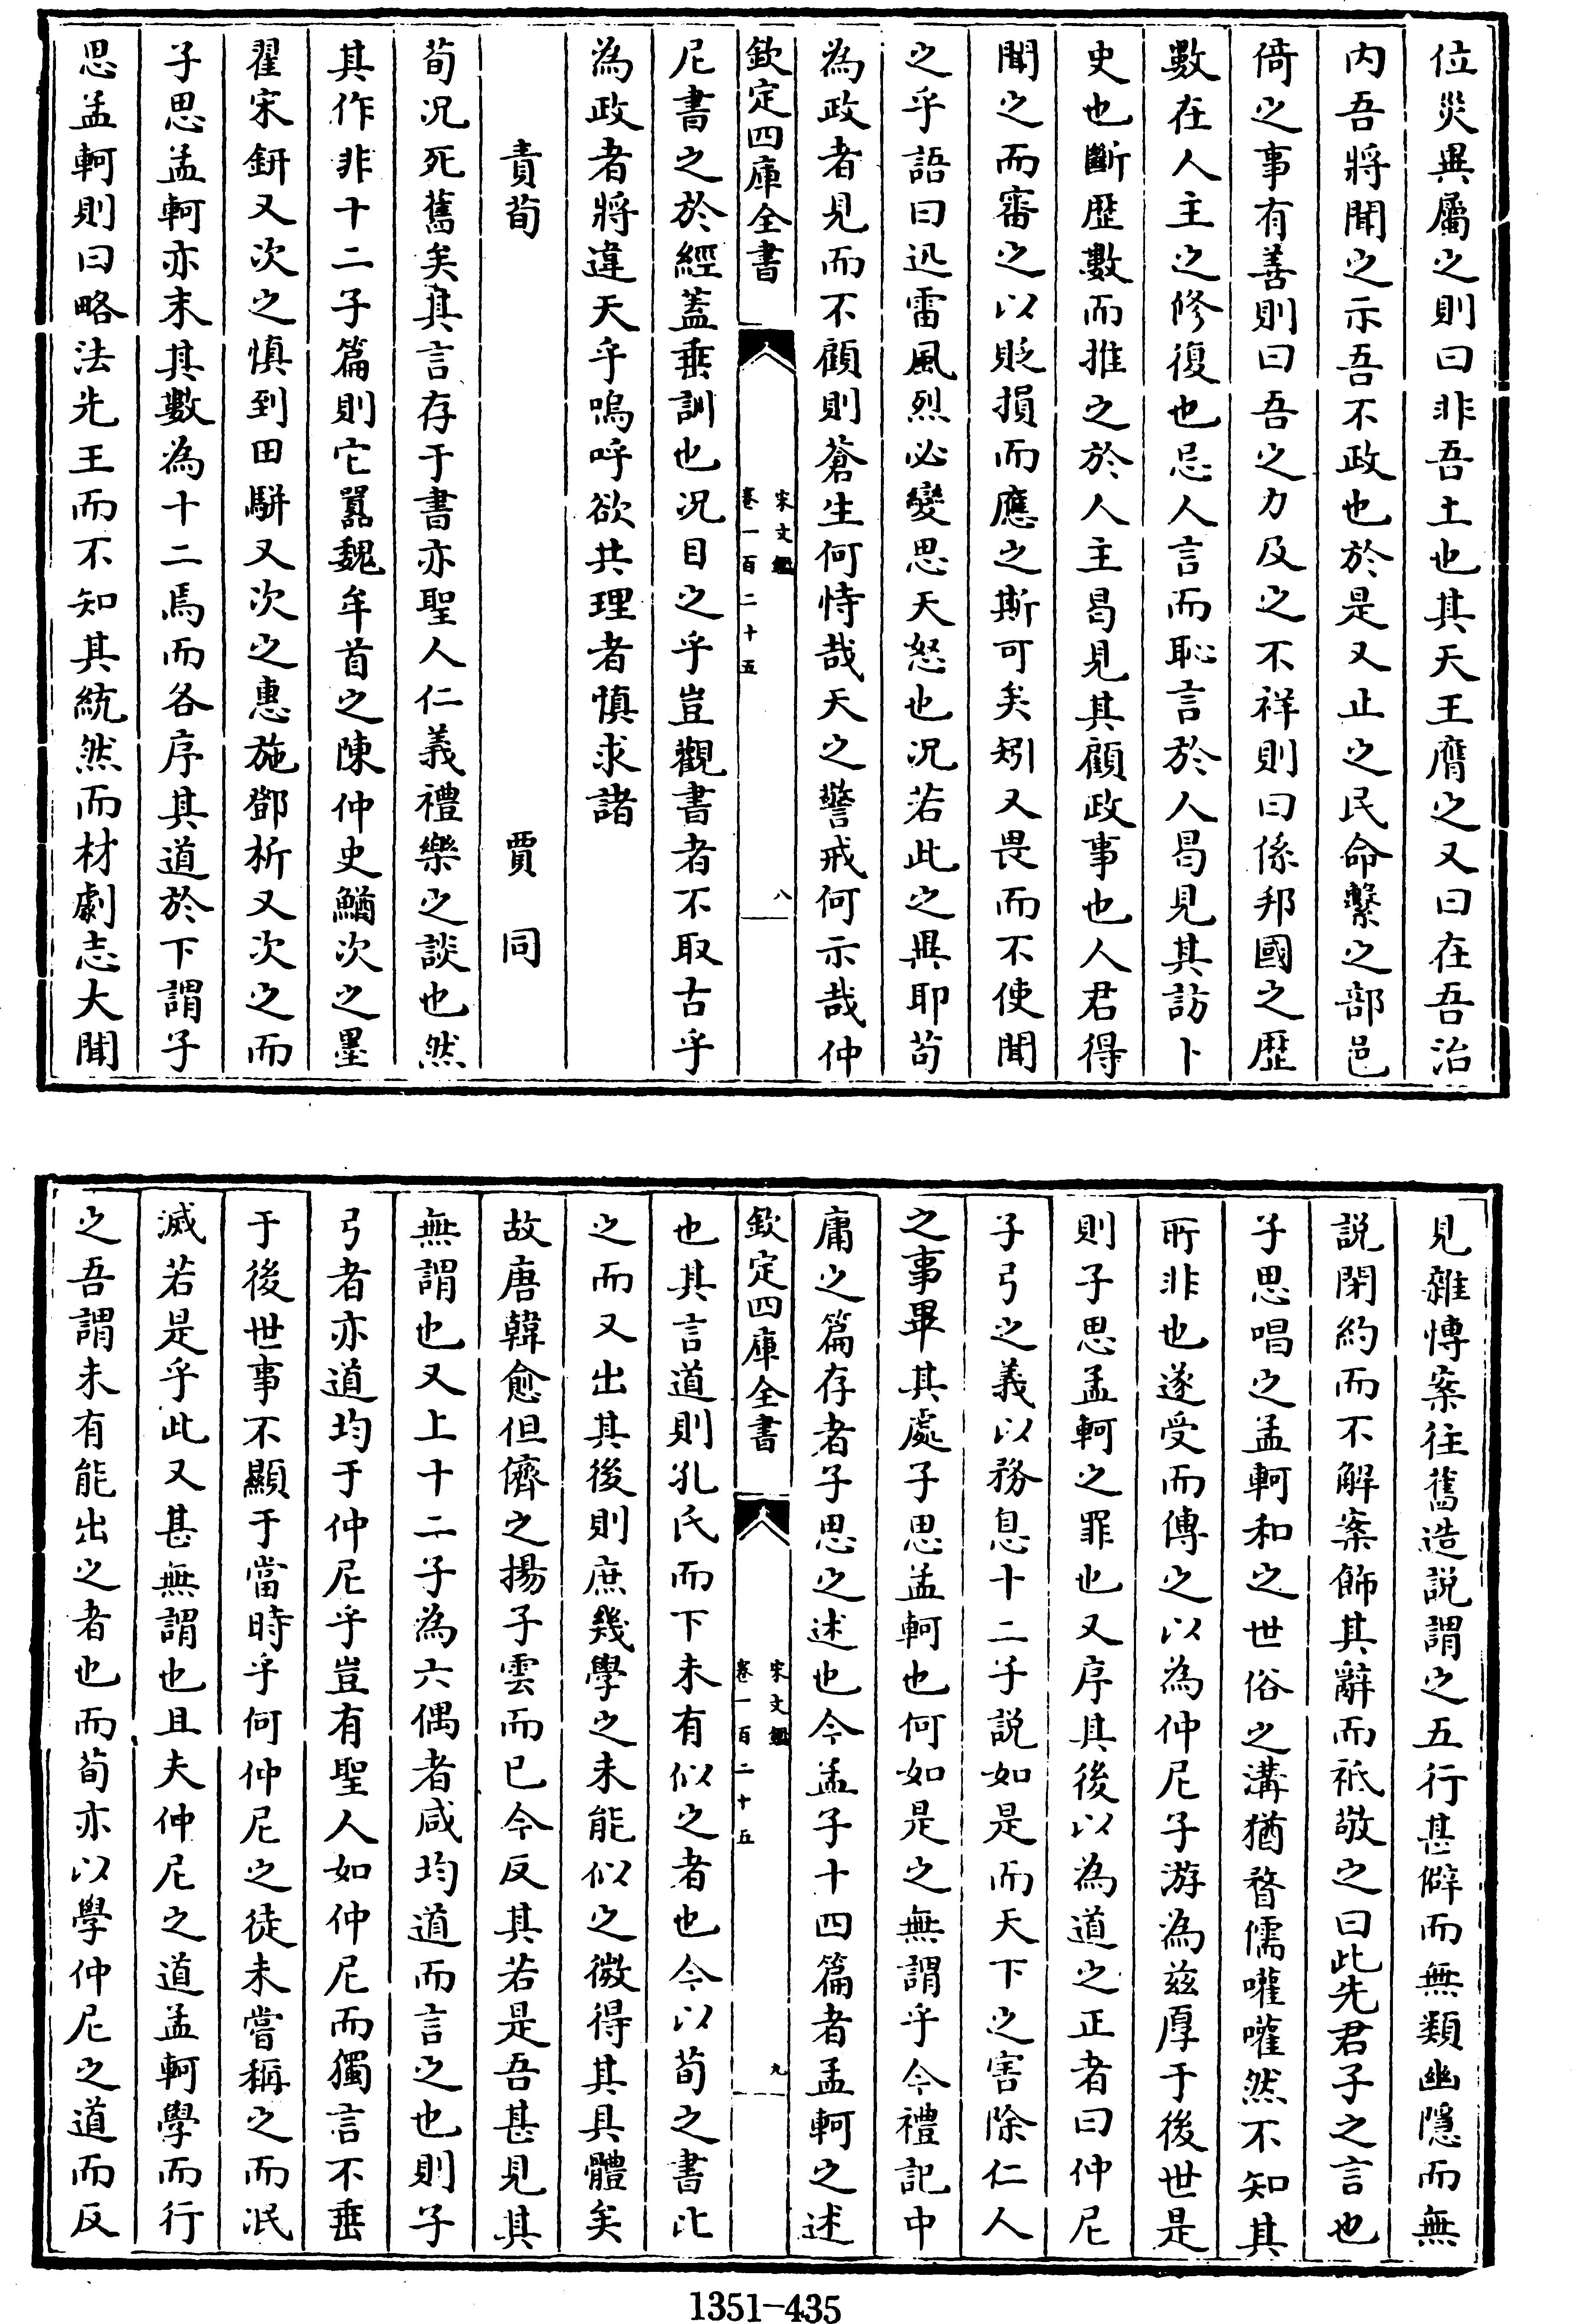 位災異屬之則曰非吾土也其天王膺之又曰在吾治
内吾將聞之示吾不政也於是又止之民命繫之部邑
倚之事有善則曰吾之力及之不祥則曰係邦國之歴
數在人主之修復也忌人言而恥言於人曷見其訪卜
史也斷歴數而推之於人主曷見其顧政事也人君得
聞之而審之以貶損而應之斯可矣矧又畏而不使聞
之乎語曰迅雷風烈必變思天怒也况若此之異耶苟
為政者見而不顧則蒼生何恃哉天之警戒何示哉仲
欽定四庫全書
宋文鑑
卷一百二十五
八
尼書之於經蓋垂訓也况目之乎豈觀書者不取古乎
為政者將違天乎嗚呼欲共理者慎求諸
責荀 賈同
荀况死舊矣其言存于書亦聖人仁義禮樂之談也然
其作非十二子篇則它嚚魏牟首之陳仲史鰌次之墨
翟宋鈃又次之慎到田駢又次之惠施鄧析又次之而
子思孟軻亦末其數為十二焉而各序其道於下謂子
思孟軻則曰略法先王而不知其統然而材劇志大聞
見雜博案往舊造説謂之五行甚僻而無類幽隱而無
説閉約而不解案飾其辭而祗敬之曰此先君子之言也
子思唱之孟軻和之世俗之溝猶瞀儒嚾嚾然不知其
所非也遂受而傳之以為仲尼子游為兹厚于後世是
則子思孟軻之罪也又序其後以為道之正者曰仲尼
子弓之義以務息十二子説如是而天下之害除仁人
之事畢其處子思孟軻也何如是之無謂乎今禮記中
庸之篇存者子思之述也今孟子十四篇者孟軻之述
欽定四庫全書
宋文鑑
卷一百二十五
九
也其言道則孔氏而下未有似之者也今以荀之書比
之而又出其後則庶幾學之未能似之微得其具體矣
故唐韓愈但儕之揚子雲而已今反其若是吾甚見其
無謂也又上十二子為六偶者咸均道而言之也則子
弓者亦道均于仲尼乎豈有聖人如仲尼而獨言不垂
于後世事不顯于當時乎何仲尼之徒未嘗稱之而泯
滅若是乎此又甚無謂也且夫仲尼之道孟軻學而行
之吾謂未有能出之者也而荀亦以學仲尼之道而反
1351-435